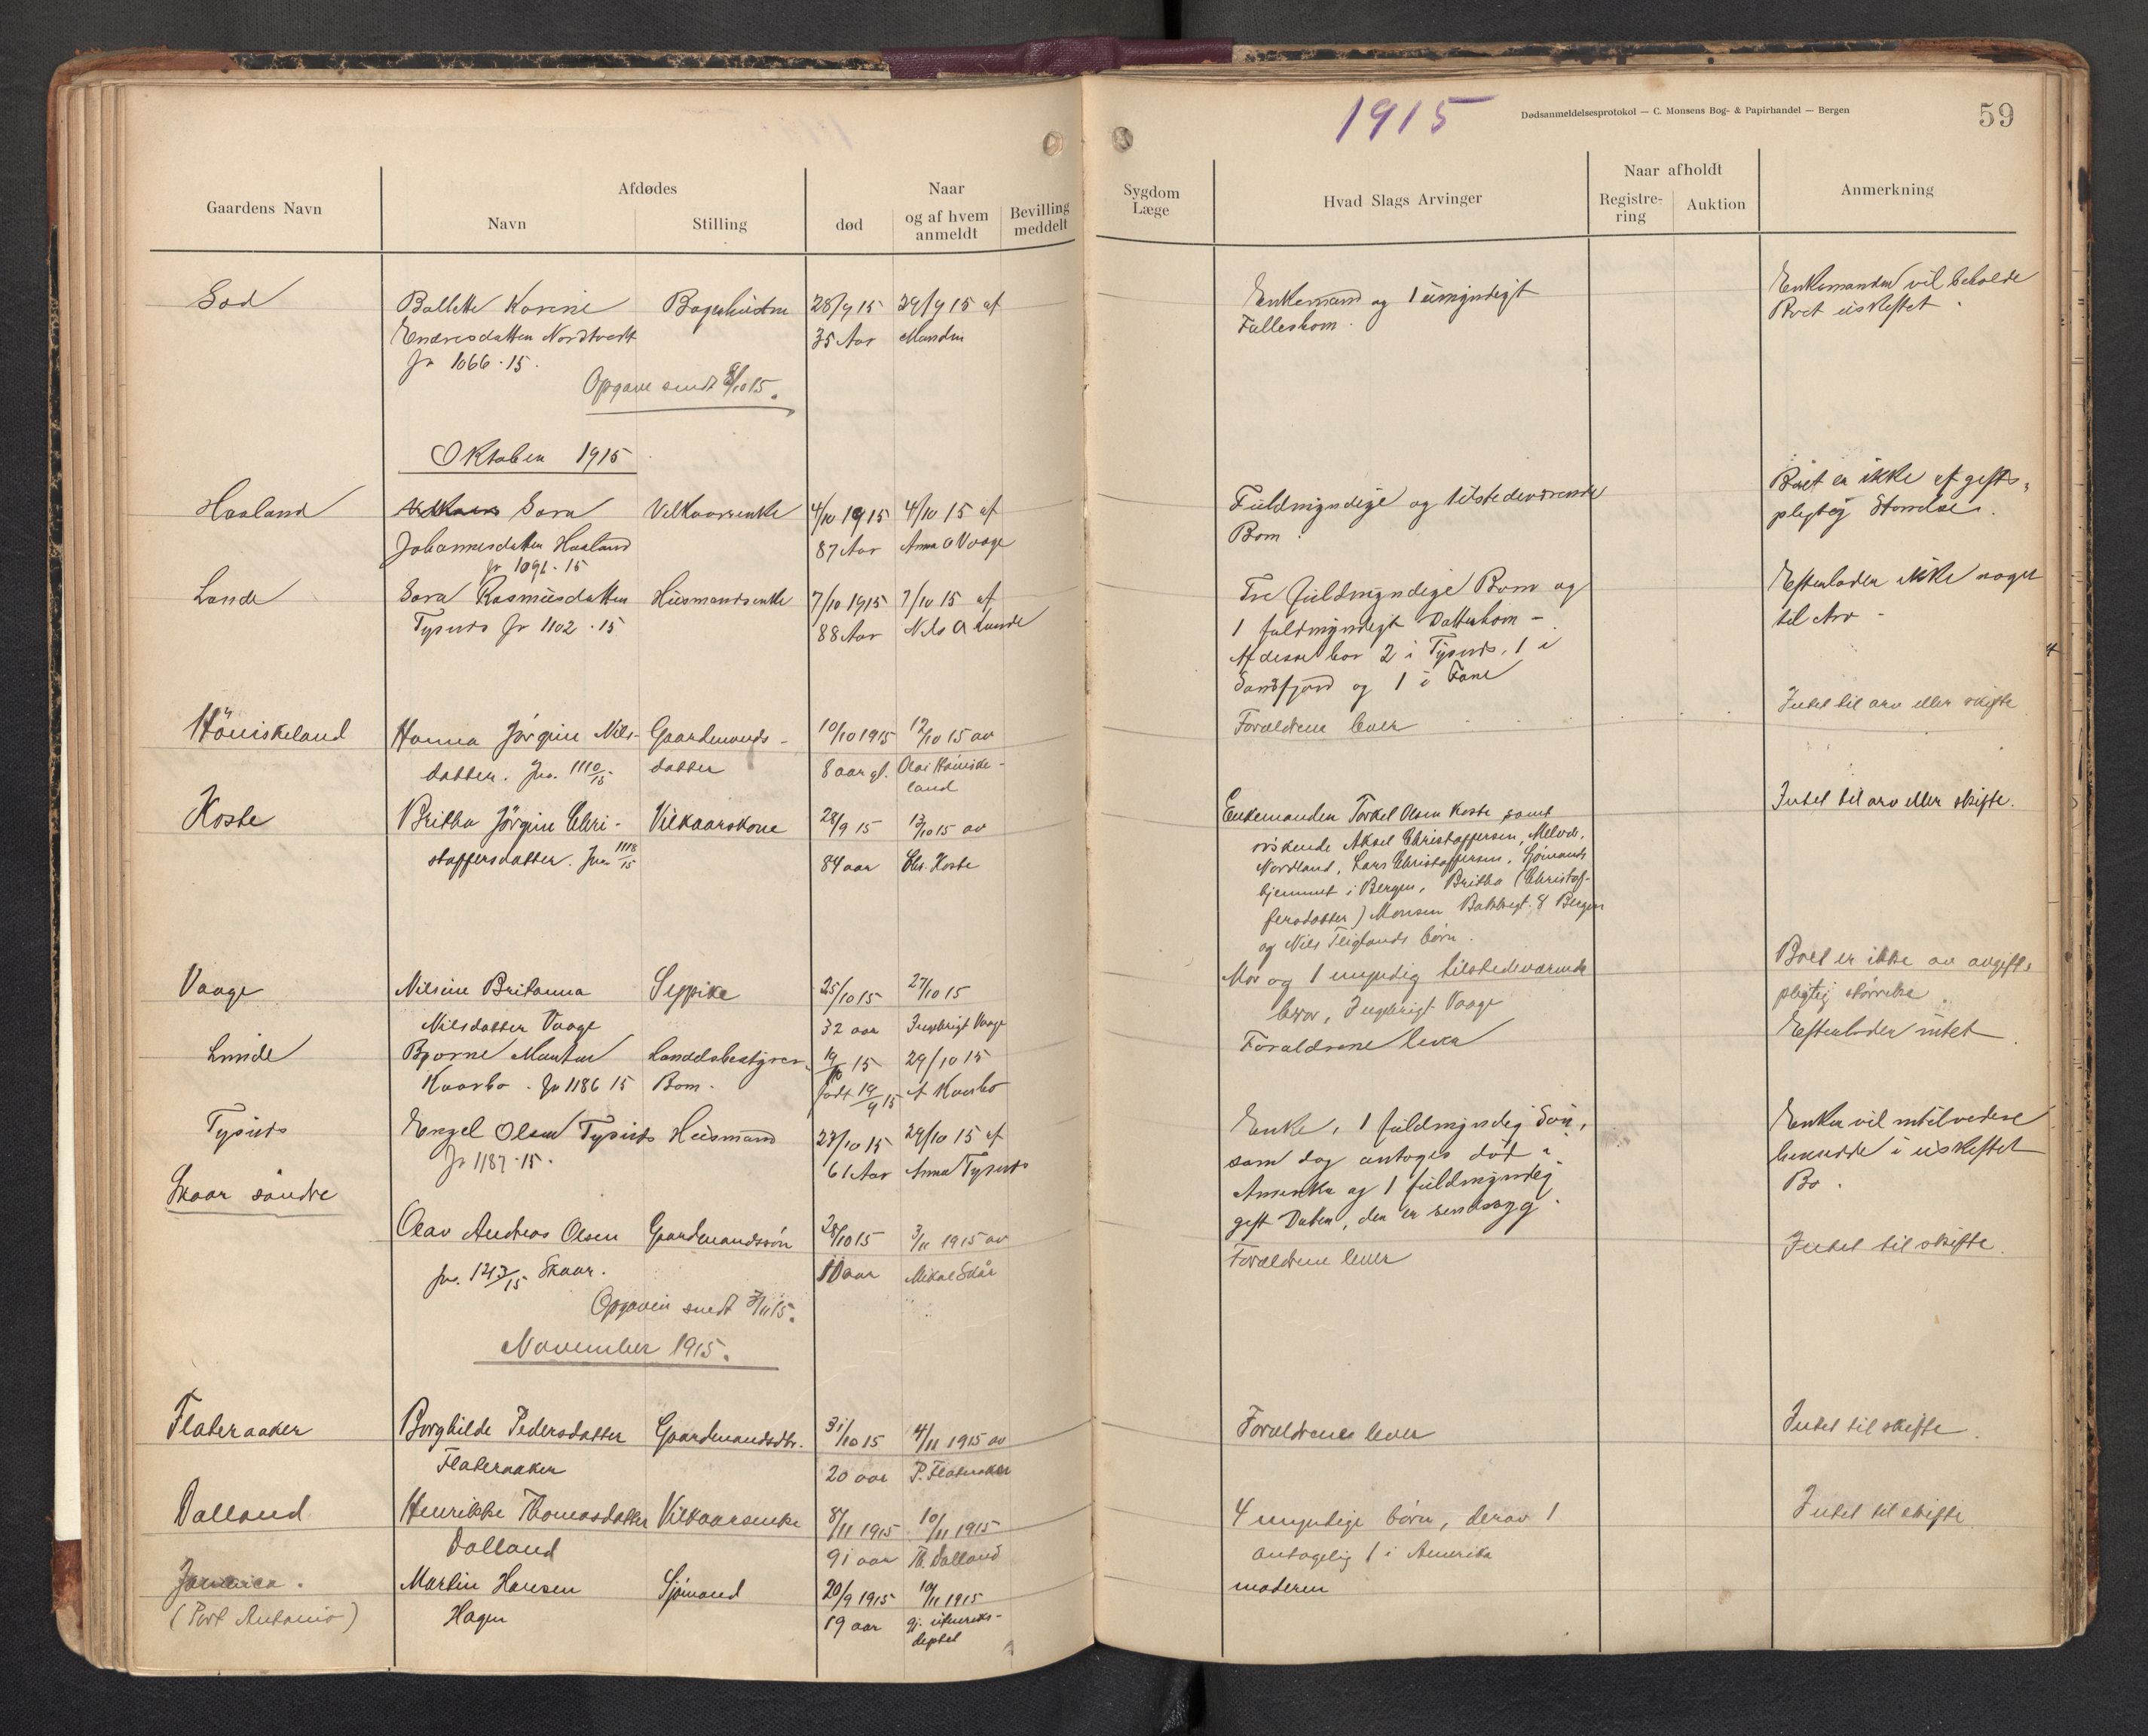 1915
Dødsanmeldelsesprotokol — C. Monsens Bog- & Papirhandel — Bergen
59
Gaardens Navn
Afdødes
Navn
Stilling
Naar
død
og af hvem anmeldt
Bevilling meddelt
Sygdom Læge
Hvad Slags Arvinger
Naar afholdt
Registrering
Auktion
Anmerkning
28/9 15 29/9 15 af
Enkemand og 1 umyndigt
Enkemanden vil beholde
35 Aar Manden
Fællesbarn.
Boet uskiftet
Jr 1066 · 15.
Opgave sendt 8/10 15.
Oktober 1915
Haaland
Sara Vilkaarsenke 4/10 1915 4/10 15 af
Fuldmyndige og tilstedeværende
Boet er ikke afgifts-
Johannesdatter Haaland 87 Aar Anna O Vaage
Børn.
pligtig Størrelse.
Sara Rasmusdatter Husmandsenke 7/10 1915 7/10 15 af
Tre fuldmyndige Børn og
Efterlader ikke noget
Jr 1102 · 15 88 Aar Nils
1 fuldmyndigt Datterbarn –
til Arv –
Af disse bor 2 i Tysnes, 1 i
og 1 i Fane
Hanna Jörgine Nils- Gaardmands- 10/10 1915 12/10 15 av
Forældrene lever
Intet til arv eller skifte
datter. Jno. 1110/15 datter 8 aar gl.
land
Koste
Britha Jörgine Chri- Vilkaarskone 28/9 15 13/10 15 av
Enkemanden Torkel Olsen Koste samt
Intet til arv eller skifte.
stoffersdatter. Jno. 1118/15 84 aar Chr. Koste
söskende Aksel Christoffersen,
Nordland, Lars Christoffersen, Sjömands
hjemmet i Bergen, Britha (Christof-
fersdatter) Monsen 8 Bergen
og Nils børn.
Vaage
Nilsine Britanna 25/10 15 27/10 15
Mor og 1 myndig tilstedeværende
Boet er ikke av avgifts
Nilsdatter Vaage 32 aar Ingebrigt Vaage
bror, Ingebrigt Vaage
pligtig störrelse.
Lunde
15 29/10 15
Forældrene lever
Efterlader intet
Jr 1186 15 Barn.
født
Tysnes
Engel Olsen Tysnes Husmand 27/10 15 29/10 15 af
Enke, 1 fuldmyndig Søn,
Enken vil
Jr 1187 · 15. 61 Aar Anna Tysnes
som dog antages død i
i uskiftet
Amerika og 1 fuldmyndig
Bo.
gift Datter, der er sindssyg.
Skaar söndre
Olav Andreas Olsen Gaardmandssön 28/10 15 3/11 1915 av
Forældrene lever
Intet til skifte.
Jno. 1213/15 Skaar. Mikal Skår
Opgaven sendt 3/11 15.
November 1915.
Flateraaker
Borghilde Pedersdatter Gaardmandsdtr. 31/10 15 4/11 1915 av
Forældrene lever
Intet til skifte.
Flateraaker 20 aar P. Flateraaker
Dalland
Henrikke Thomasdatter Vilkaarsenke 8/11 1915 10/11 1915
4 myndige börn, derav 1
Intet til skifte
Dalland 91 aar Th. Dalland
antagelig 1 i Amerika
Jamaica.
Martin Hansen Sjömand 20/9 1915 10/11 1915
moderen
(Port Antonio)
Hagen 19 aar gj. utenriks-
deptet